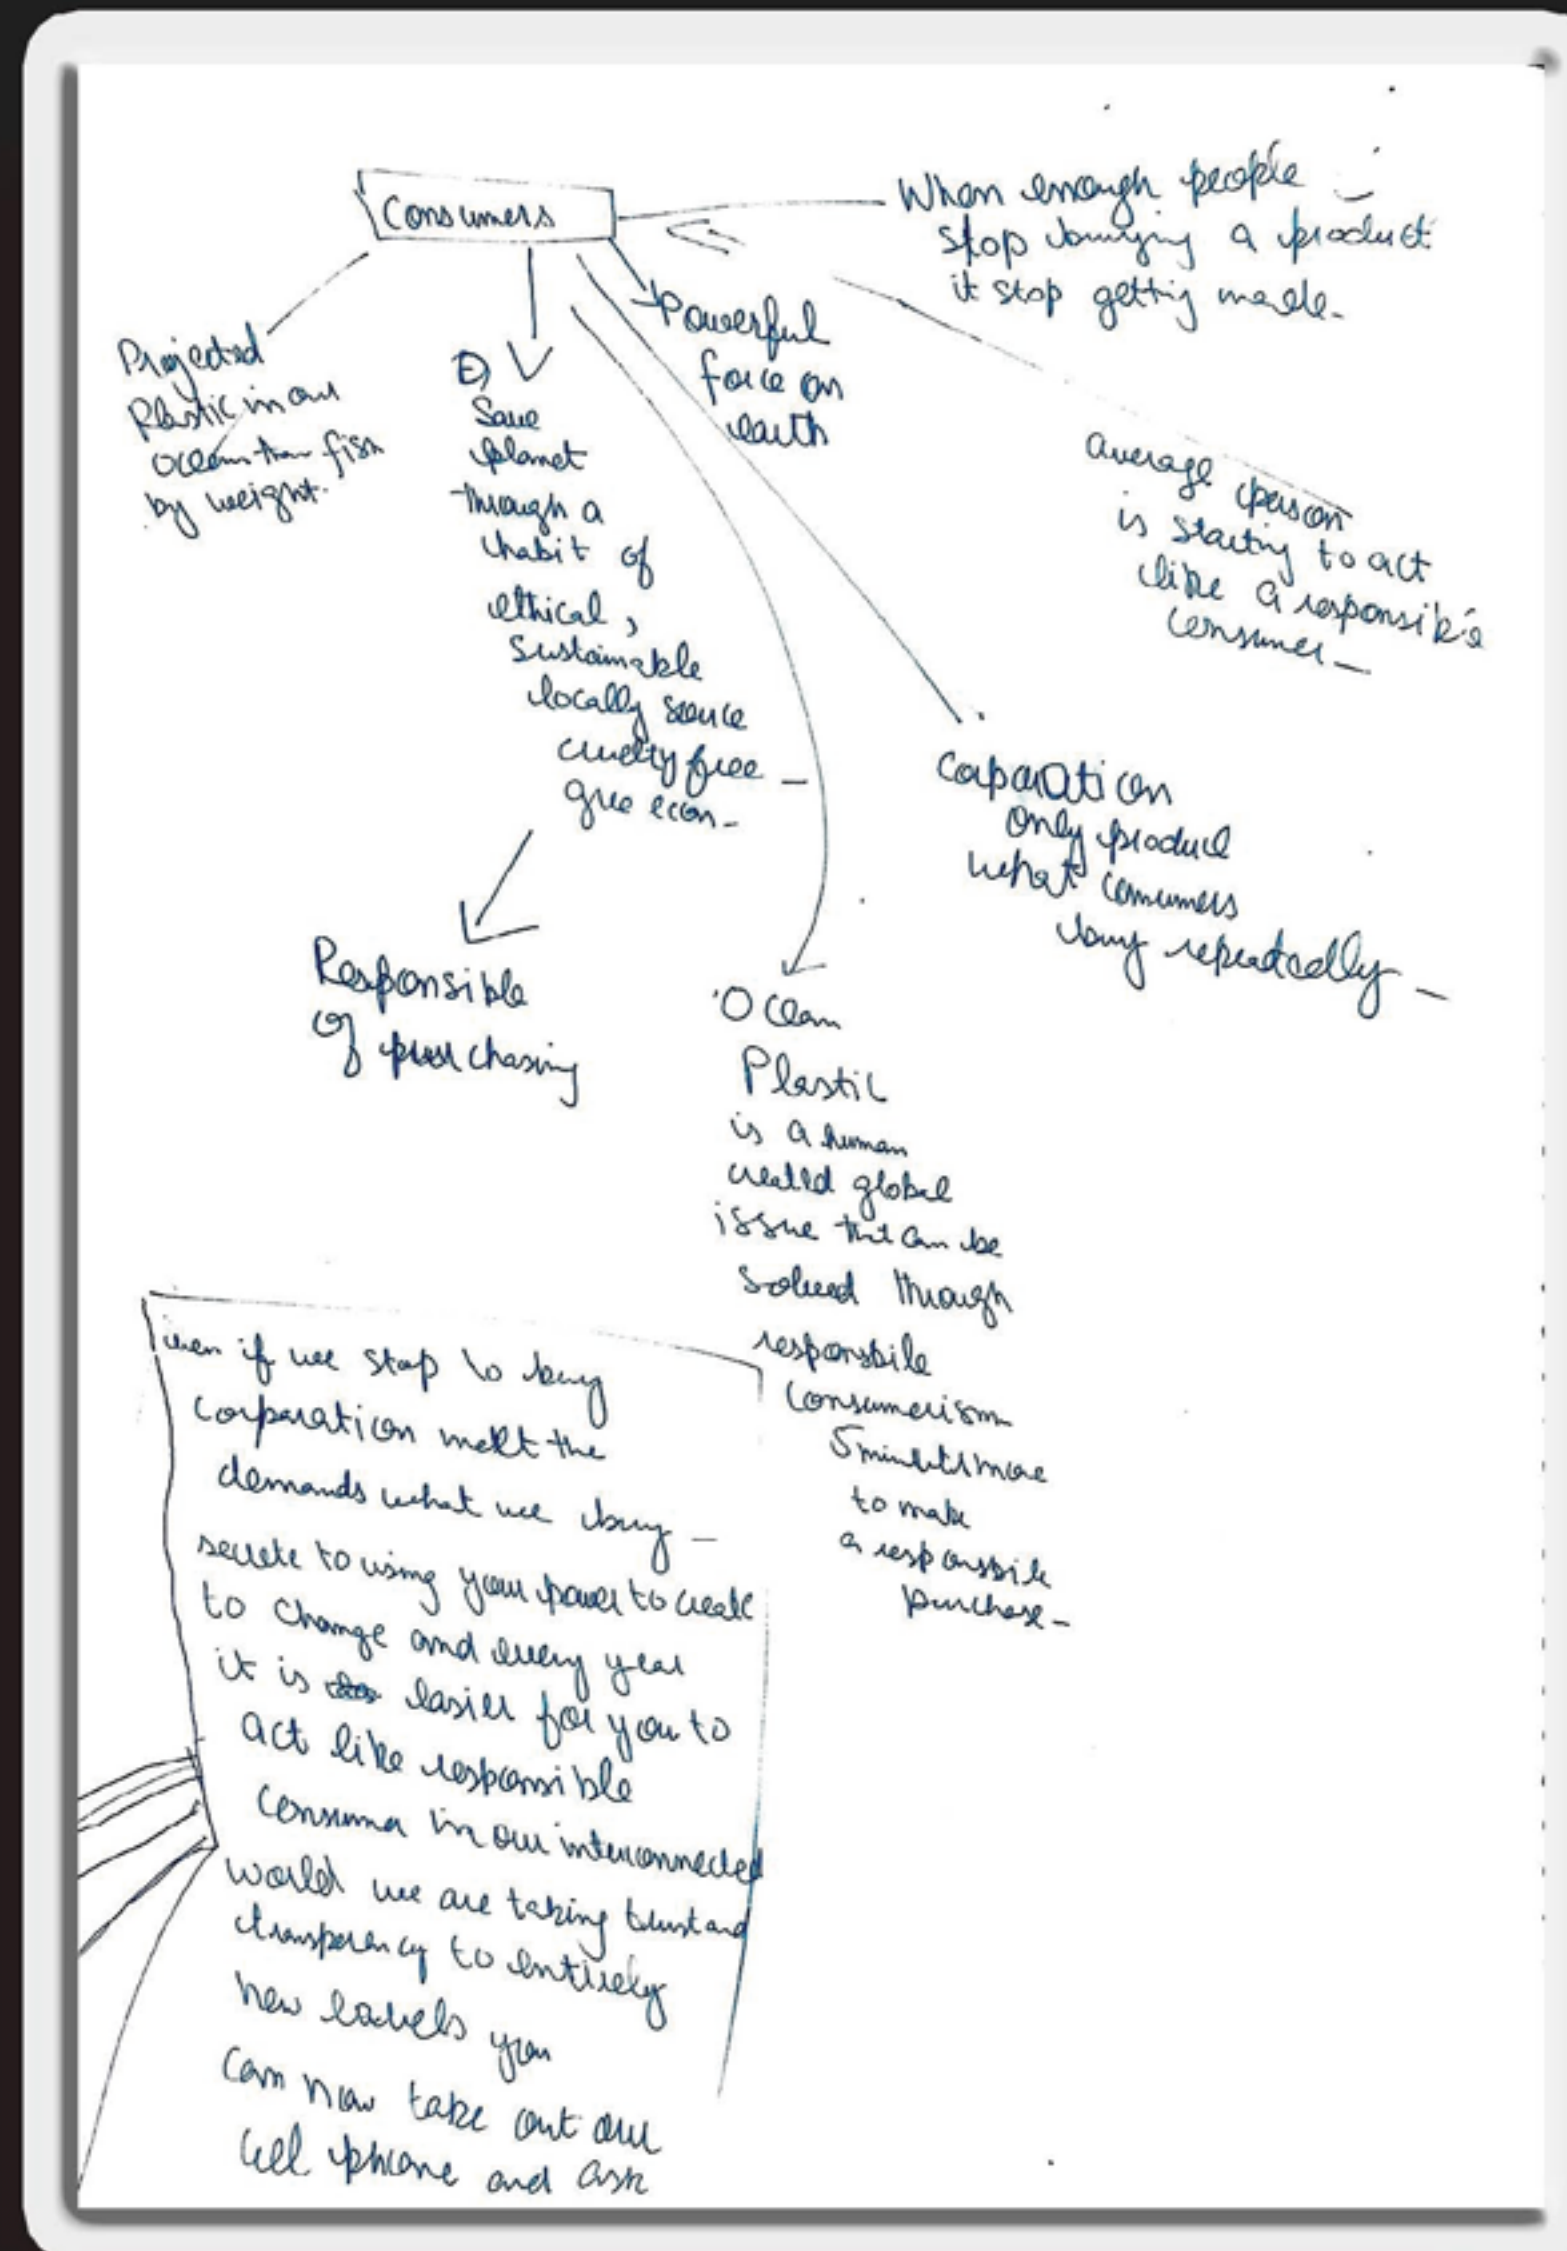 Consumers
When enough people
stop buying a product
it stop getting made.
Powerful
force on
earth
Projected
Plastic in our
ocean than fish
by weight.
Save
planet
through a
habit of
ethical,
sustainable
locally source
cruelty free
econ
average person
is starting to act
like a responsible
consumer
Corporation
only produce
what consumers
buy repeatedly
Responsible
of purchasing
Ocean
Plastic
is a human
created global
issue that can be
solved through
responsbile
consumerism
5 minutes more
to make
a responsbile
purchase
even if we stop to buy
corporation meet the
demands what we buy
secrete to using your power to create
to change and every year
it is easier for you to
act like responsible
consumer in our interconnected
world we are taking trust and
transparency to entirely
new levels you
can now take out our
cell phone and ask